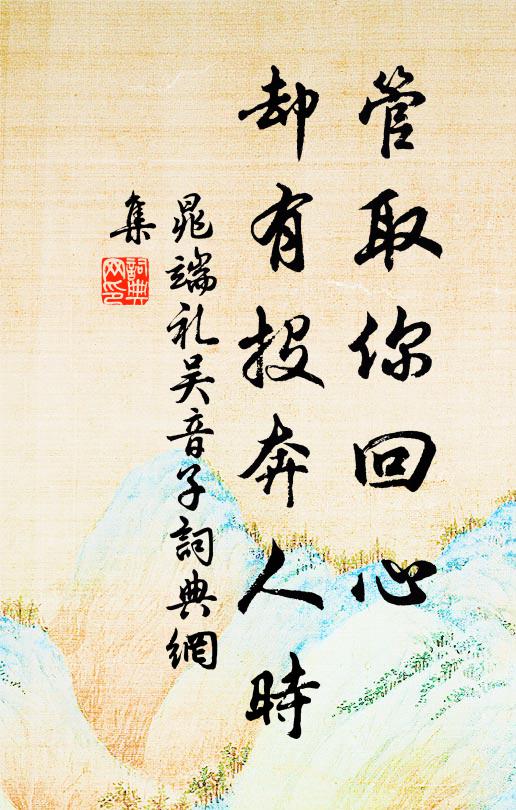 管取你回心
却有投奔人時
晁端礼吴音子詞典網
集
詞典网印